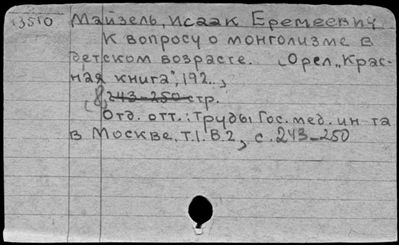 13510 Майзель, Исаак Еремеевич
К вопросу о монголизме в
детском возрасте. (Орел, „Крас-
ная книга", 192..,
(8) 243-250 стр.
Отд. отт.: Труды Гос. мед. ин-та
в Москве, т.1. В.2, с. 243-250